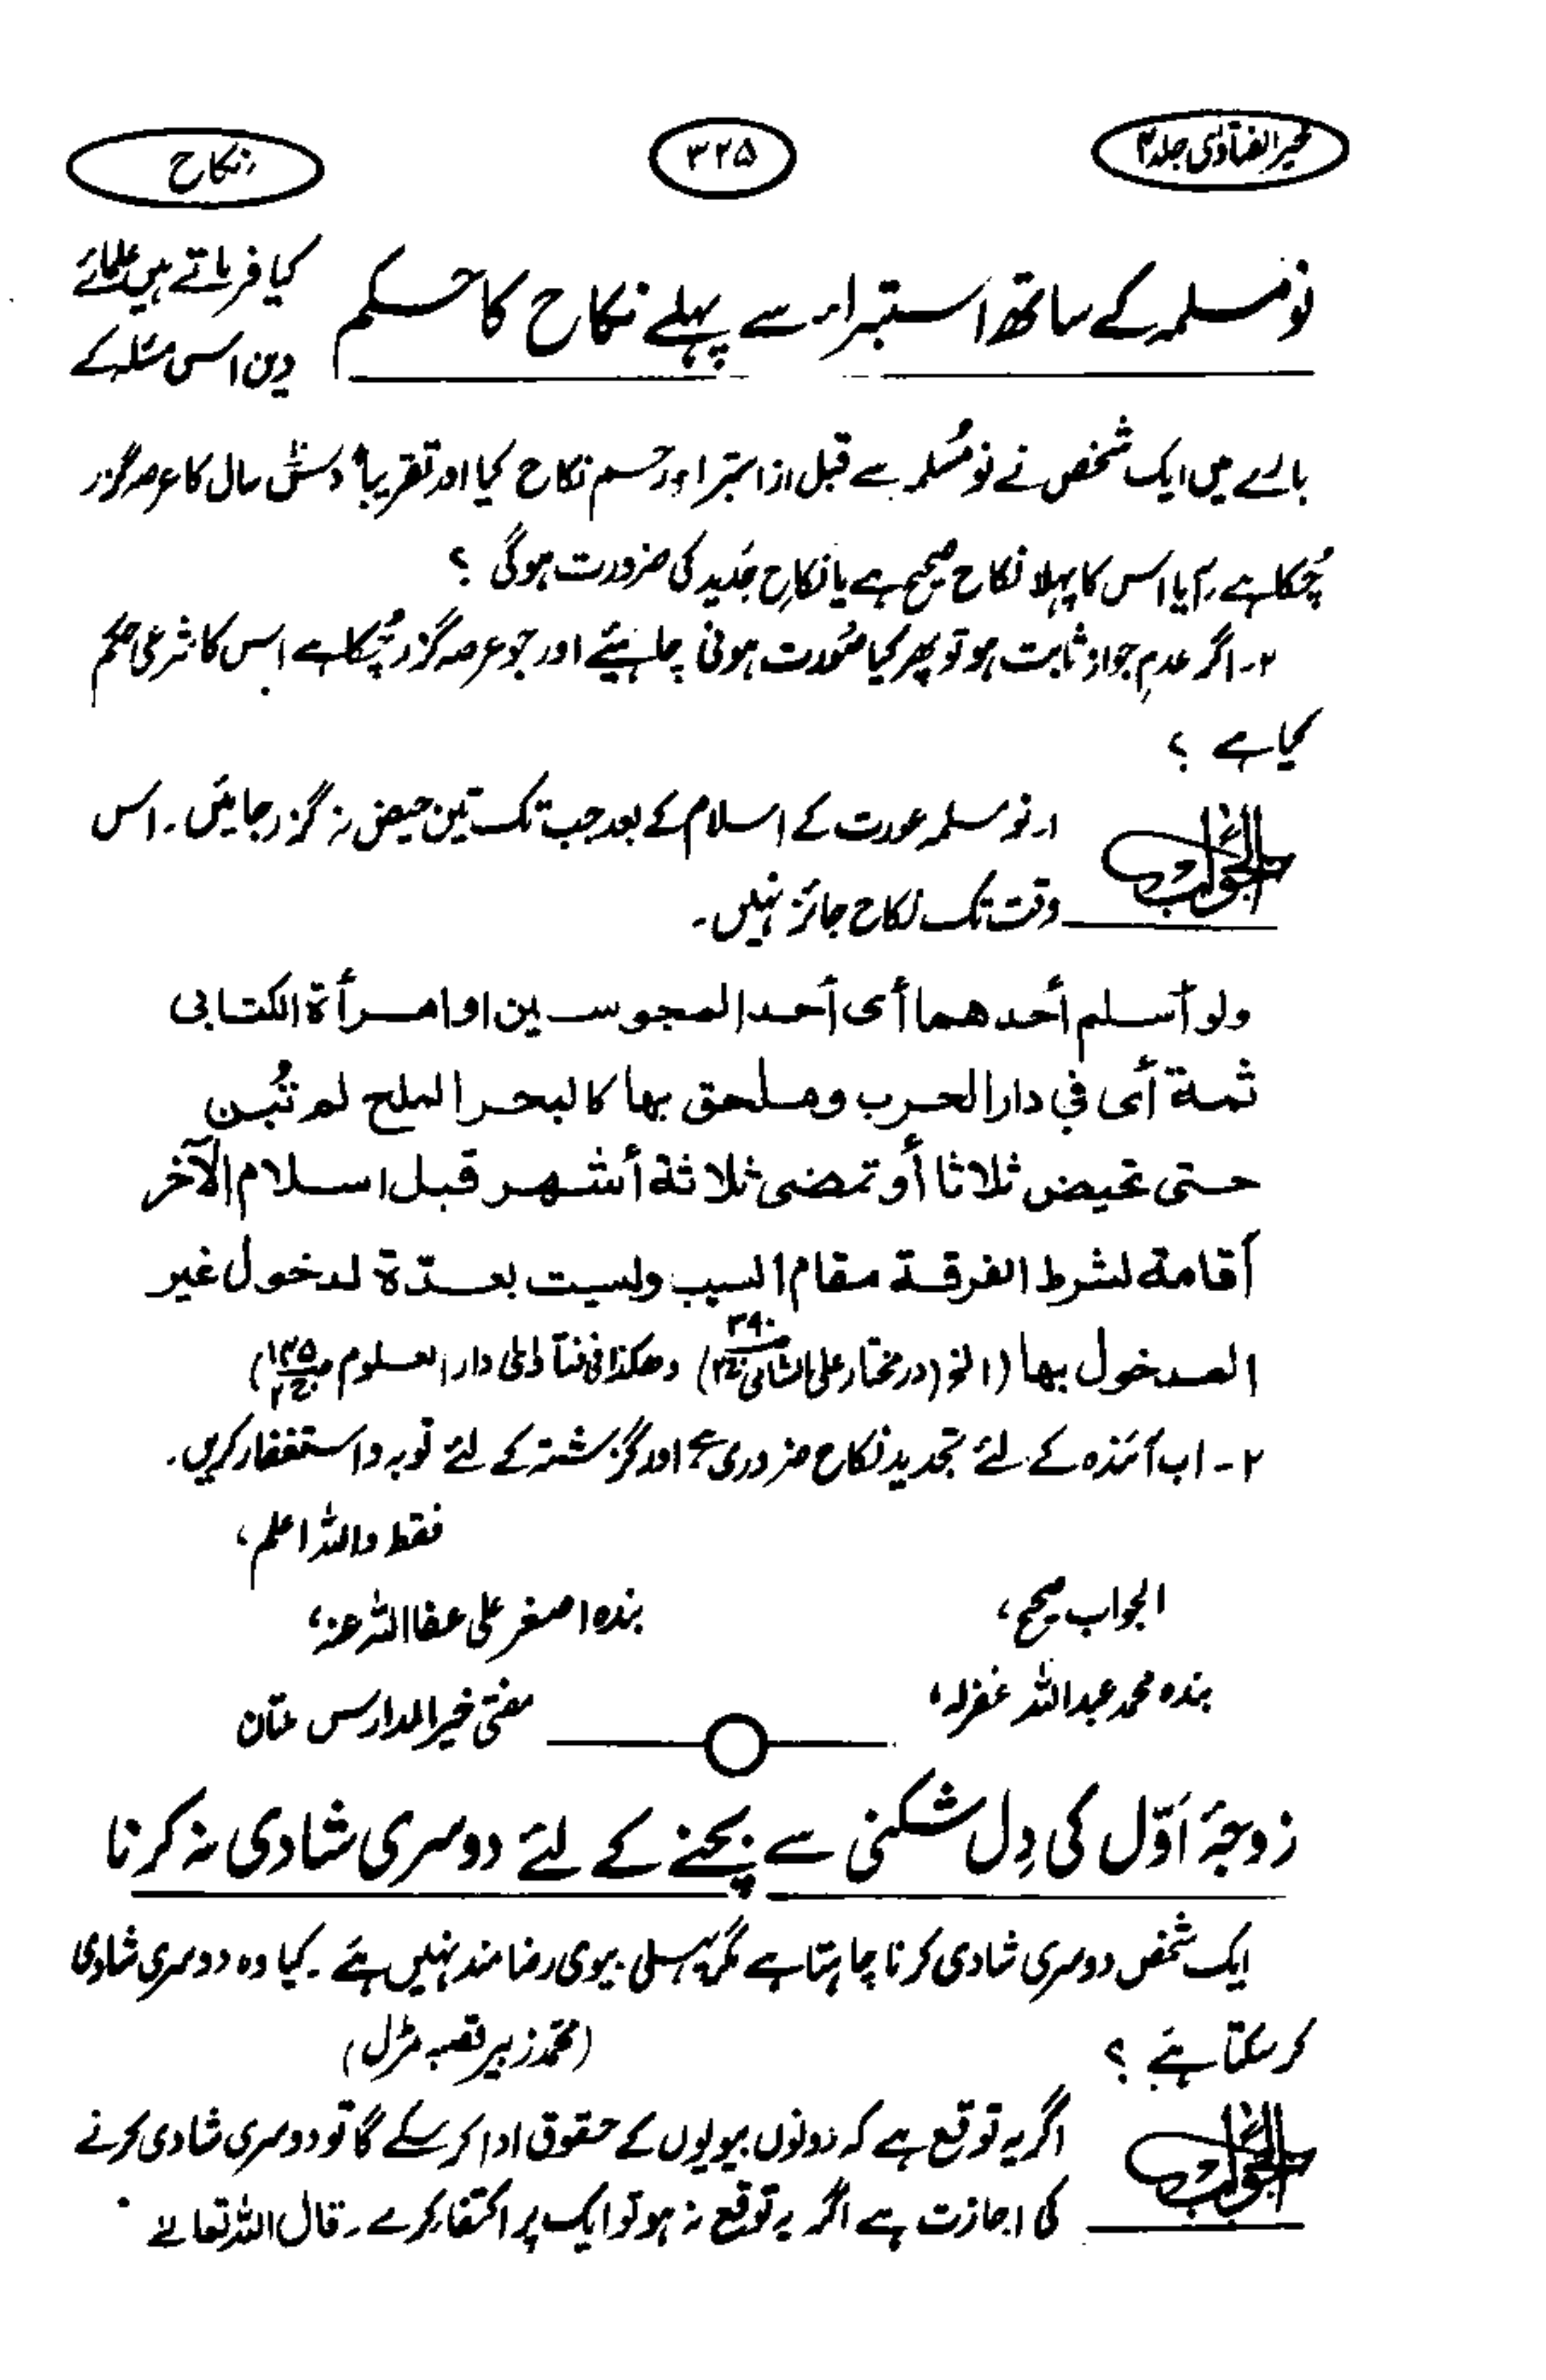 خیر الفتاویٰ جلد ۴
۳۲۵
نکاح
نو مسلمہ کے ساتھ استبراء سے پہلے نکاح کا حکم
کیا فرماتے ہیں علمائے
دین اس مسئلہ کے
بارے میں ایک شخص نے نو مسلمہ سے قبل از استبراء رحم نکاح کیا اور تقریباً دس سال کا عرصہ گزر
چکا ہے۔ آیا اس کا پہلا نکاح صحیح ہے یا نکاحِ جدید کی ضرورت ہوگی ؟
۲۔ اگر عدمِ جواز ثابت ہو تو پھر کیا صورت ہونی چاہیئے اور جو عرصہ گزر چکا ہے اس کا شرعی حکم
کیا ہے ؟
الجواب
۱۔ نو مسلمہ عورت کے اسلام کے بعد جب تک تین حیض نہ گزر جائیں۔ اس
وقت تک نکاح جائز نہیں۔
ولو أسلم أحدهما أى أحد المجوسيين او امرأة الكتابى
ثمة أى في دار الحرب وملحق بها كالبحر الملح لم تبن
حتى تحيض ثلاثا أو تمضى ثلاثة أشهر قبل اسلام الآخر
أقامة لشرط الفرقة مقام السبب وليست بعدّة لدخول غير
المدخول بها (الخ (در مختار علی الشامی ص۳۹۰ ج۲) وهكذا فى فتاوٰى دار العلوم ص۱۲۵)
۲۔ اب آئندہ کے لئے تجدیدِ نکاح ضروری ہے اور گزشتہ کے لئے توبہ و استغفار کریں۔
فقط واللہ اعلم،
الجواب صحیح،
بندہ اصغر علی عفا اللہ عنہ،
بندہ محمد عبداللہ غفرلہ،
مفتی خیر المدارس ملتان
زوجۂ اَوّل کی دِل شکنی سے بچنے کے لئے دوسری شادی نہ کرنا
ایک شخص دوسری شادی کرنا چاہتا ہے مگر پہلی بیوی رضامند نہیں ہے۔ کیا وہ دوسری شادی
کر سکتا ہے ؟
(محمد زبیر قصبہ مڑل)
الجواب
اگر یہ توقع ہے کہ دونوں بیویوں کے حقوق ادا کر سکے گا تو دوسری شادی کرنے
کی اجازت ہے اگر یہ توقع نہ ہو تو ایک پر اکتفاء کرے۔ قال اللہ تعالےٰ